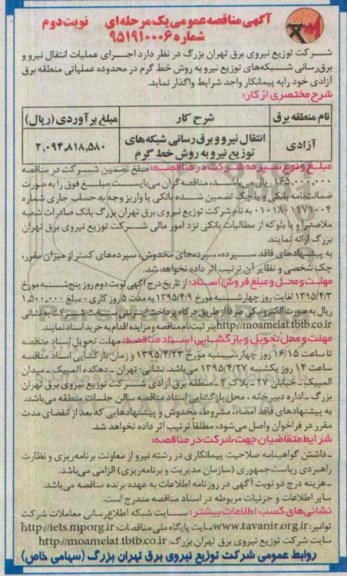 آگهی مناقصه عمومی یک مرحله‌ای نوبت دوم
شماره ۹۵۱۹۱۰۰۰۶
شرکت توزیع نیروی برق تهران بزرگ در نظر دارد اجرای عملیات انتقال نیرو و
برق‌رسانی شبکه‌های توزیع نیرو به روش خط گرم در محدوده عملیاتی منطقه برق
آزادی خود را به پیمانکار واجد شرایط واگذار نماید.
شرح مختصری از کار:
نام منطقه برق شرح کار مبلغ برآوردی (ریال)
آزادی انتقال نیرو و برق رسانی شبکه‌های توزیع نیرو به روش خط گرم ۲,۰۹۳,۸۱۸,۵۸۰
مبلغ و نوع سپرده شرکت در مناقصه: مبلغ تضمین شرکت در مناقصه
۱۶۵,۰۰۰,۰۰۰ ریال می‌باشد، مناقصه‌گران می‌بایست مبلغ فوق را به صورت
ضمانتنامه بانکی و یا چک تضمین شده بانکی یا واریز وجه به حساب جاری شماره
۰۱۰۱۸۰۱۷۱۰۰۴ به نام شرکت توزیع نیروی برق تهران بزرگ بانک صادرات شعبه
ملاصدرا و یا بلوکه از مطالبات بانکی نزد امور مالی شرکت توزیع نیروی برق تهران
بزرگ ارائه نمایند.
به پیشنهادهای فاقد سپرده، سپرده‌های مخدوش، سپرده‌های کمتر از میزان مقرر،
چک شخصی و نظایر آن ترتیب اثر داده نخواهد شد.
مهلت و محل و مبلغ فروش اسناد: از تاریخ درج آگهی نوبت دوم روز پنج‌شنبه مورخ
۱۳۹۵/۴/۳ لغایت روز چهارشنبه مورخ ۱۳۹۵/۴/۹ به مدت ۵ روز کاری - مبلغ ۱,۵۰۰,۰۰۰
ریال به صورت الکترونیکی صرفاً از طریق درگاه پرداخت اینترنتی سایت شرکت به نشانی
http://moamelat.tbtb.co.ir پس از ثبت‌نام مناقصه و مزایده اقدام به خرید اسناد نمایند.
مهلت و محل تحویل و بازگشایی اسناد مناقصه: مهلت تحویل اسناد مناقصه
تا ساعت ۱۶/۱۵ روز چهارشنبه مورخ ۱۳۹۵/۴/۲۳ و زمان بازگشایی اسناد مناقصه
ساعت ۱۴ روز یکشنبه ۱۳۹۵/۴/۲۷ می‌باشد. نشانی: تهران - دهکده المپیک - میدان
المپیک - خیابان ۲۷ - پلاک ۴ - منطقه برق آزادی شرکت توزیع نیروی برق تهران
بزرگ - اداره دبیرخانه، محل بازگشایی اسناد مناقصه سالن جلسات منطقه می‌باشد.
به پیشنهادهای فاقد امضاء، مشروط، مخدوش و پیشنهادهایی که بعد از انقضای مدت
مقرر در فراخوان واصل می‌شود، مطلقاً ترتیب اثر داده نخواهد شد.
شرایط متقاضیان جهت شرکت در مناقصه:
- داشتن گواهینامه صلاحیت پیمانکاری در رشته نیرو از معاونت برنامه‌ریزی و نظارت
راهبردی ریاست‌جمهوری (سازمان مدیریت و برنامه‌ریزی) الزامی می‌باشد.
- هزینه درج دو نوبت آگهی در روزنامه اطلاعات به عهده برنده مناقصه می‌باشد.
سایر اطلاعات و جزئیات مربوطه در اسناد مناقصه مندرج است.
نشانی‌های کسب اطلاعات بیشتر: سایت شبکه اطلاع‌رسانی معاملات شرکت
توانیر: www.tavanir.org.ir سایت پایگاه ملی مناقصات: http://iets.mporg.ir
سایت شرکت توزیع نیروی برق تهران بزرگ: http://moamelat.tbtb.co.ir
روابط عمومی شرکت توزیع نیروی برق تهران بزرگ (سهامی خاص)